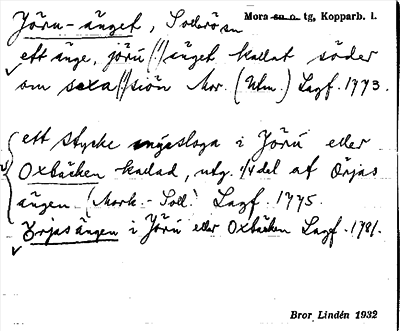 Jöru-änget, Sollerö sn
Mora sn o. tg, Kopparb. l.
ett änge, jöru(!)änget kallat söder
om sexa(!)siön Mor. (Utm.) Lagf. 1773.
ett stycke myrsloga i Jörú eller
Oxbäcken kallad, utg. 1/4 del af Örjas
ängen (Mork.-Soll.) Lagf. 1775.
Örjasängen i Jörú eller Oxbäcken Lagf. 1781.
Bror Lindén 1932